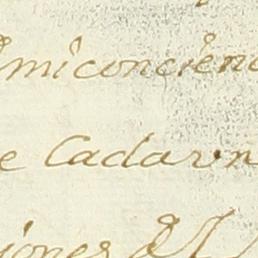 miconcien
e Cadaun
iones del